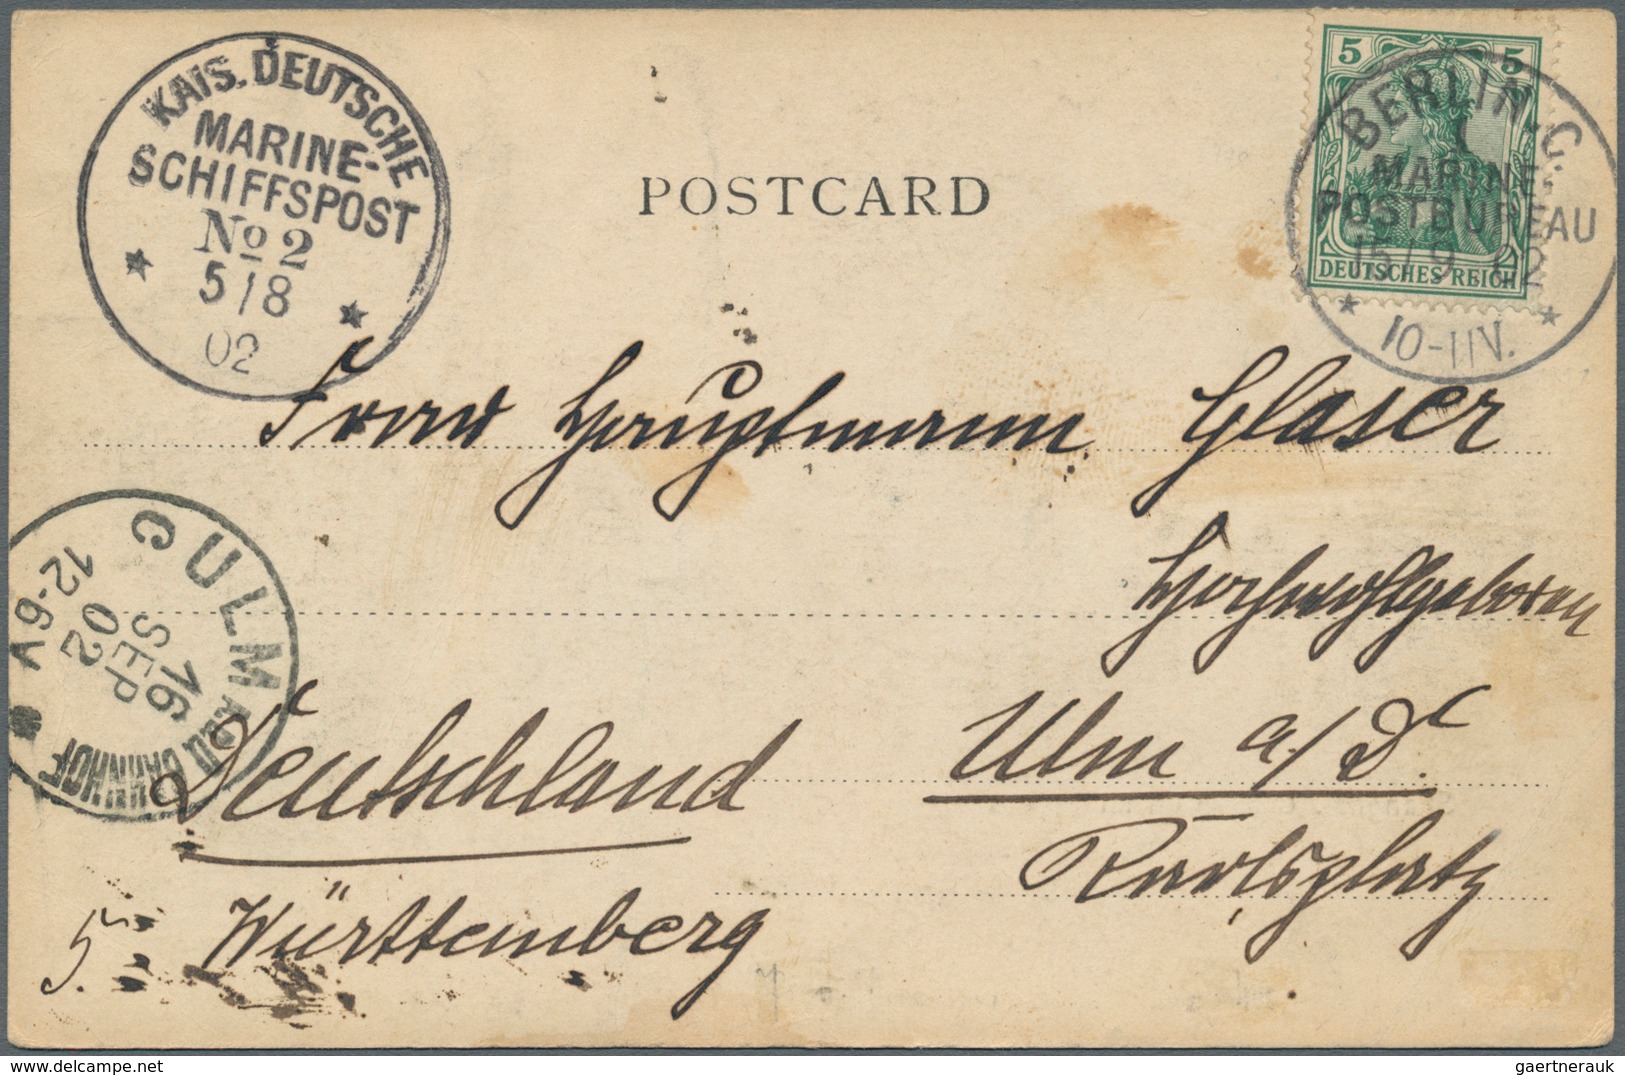 KAIS. DEUTSCHE
MARINE-
SCHIFFSPOST
No 2
5/8
02
POSTCARD
5 5
DEUTSCHES REICH
BERLIN. C.
1
MARINE-
POSTBUREAU
15/9 02
10-11V.
Frau Hauptmann Glaser
Hochwohlgeboren
CULM
BAHNHOF
16
SEP
02
12-6V
Deutschland
Ulm a/D.
Karlsplatz
5.
Württemberg
delcampe.net
gaertnerauk